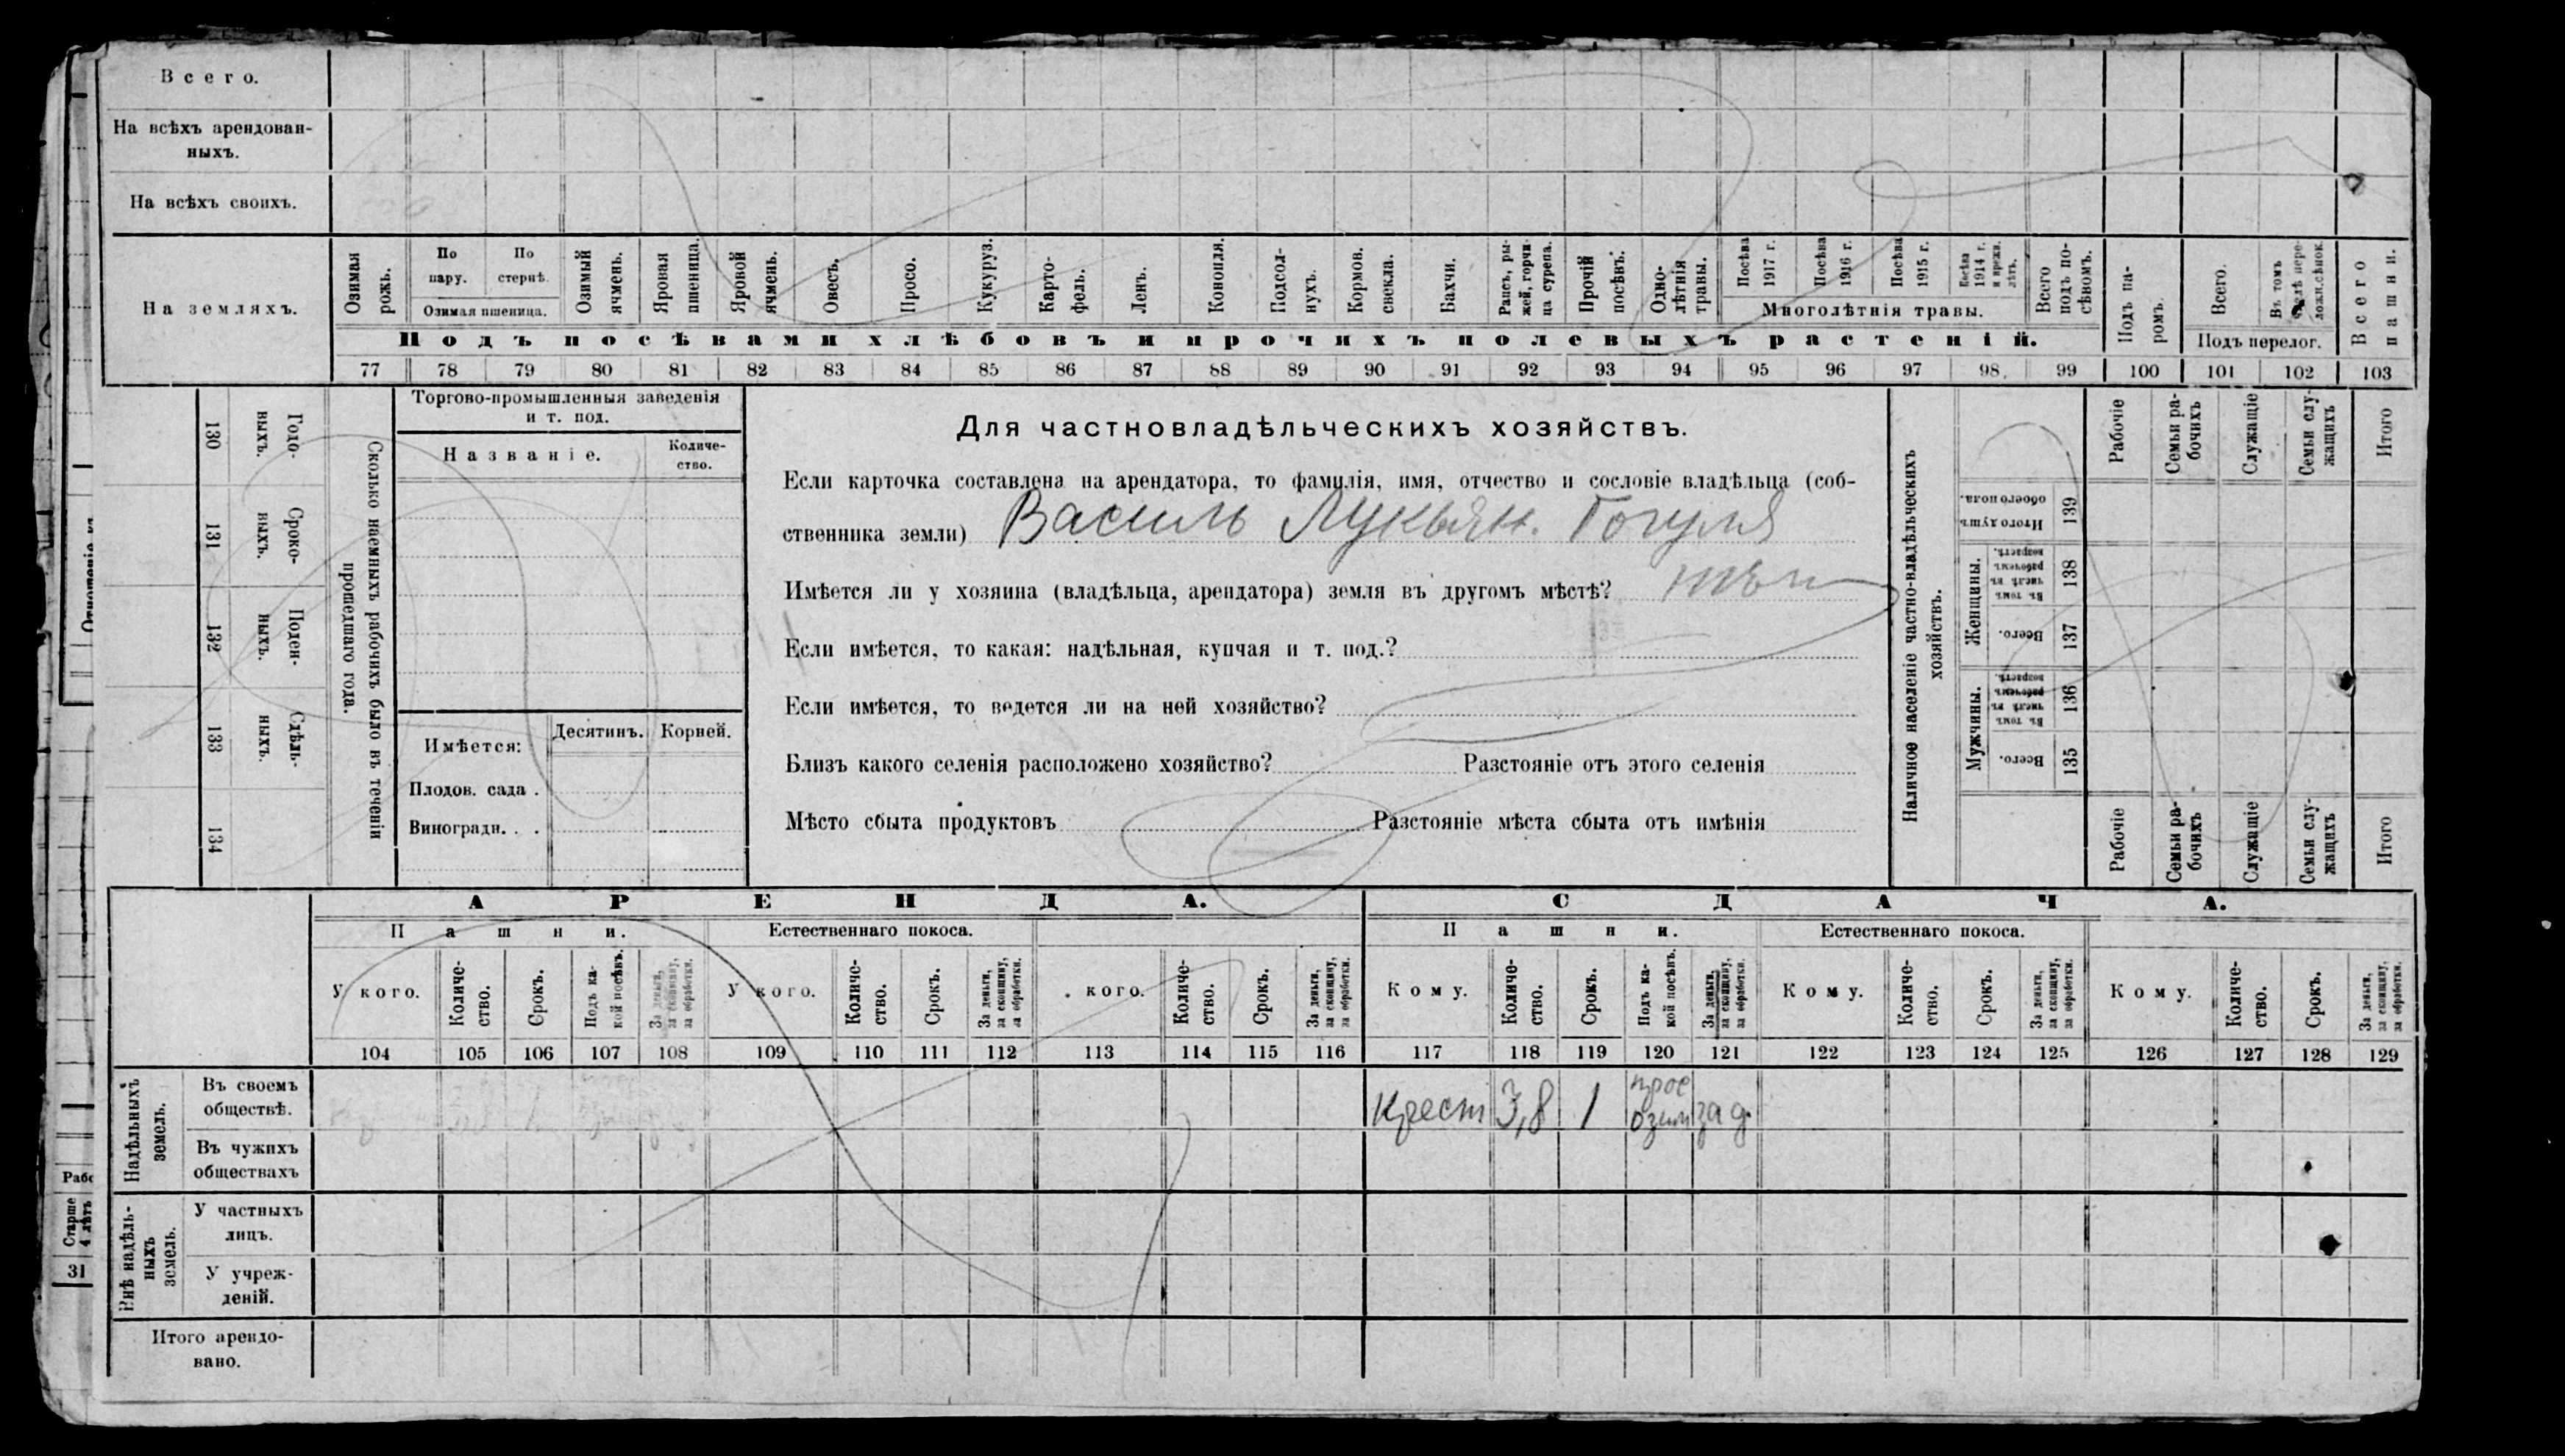 Всего.
На всѣхъ арендован-
ныхъ.
На всѣхъ своихъ.
На земляхъ.
Озимая рожь.
По пару.
По стернѣ.
Озимая пшеница.
Озимый ячмень.
Яровая пшеница.
Яровой ячмень.
Овесъ.
Просо.
Кукуруз.
Карто-
фель.
Ленъ.
Конопля.
Подсол-
нухъ.
Кормов. свекла.
Бахчи.
Рапсъ, ры-
жей, горчи-
ца сурепа.
Прочій посѣвъ.
Одно-
лѣтнія травы.
Посѣва 1917 г.
Посѣва 1916 г.
Посѣва 1915 г.
Посѣва 1914 г.
Многолѣтнія травы.
Всего подъ по-
сѣвомъ.
Подъ па-
ромъ.
Всего.
Подъ перелог.
Всего пашни.
Подъ посѣвами хлѣбовъ и прочихъ полевыхъ растеній.
77 78 79 80 81 82 83 84 85 86 87 88 89 90 91 92 93 94 95 96 97 98 99 100 101 102 103
130 Годо-
ныхъ.
131 Сроко-
ныхъ.
132 Поден-
ныхъ.
133 Сдѣль-
ныхъ.
134
Сколько наемныхъ рабочихъ было въ теченіи
прошедшаго года.
Торгово-промышленныя заведенія
и т. под.
Названіе.
Количе-
ство.
Имѣется:
Десятинъ.
Корней.
Плодов. сада .
Виноградн. . .
Для частновладѣльческихъ хозяйствъ.
Если карточка составлена на арендатора, то фамилія, имя, отчество и сословіе владѣльца (соб-
ственника земли) Василь Лукьян. Гогуля
Имѣется ли у хозяина (владѣльца, арендатора) земля въ другомъ мѣстѣ?
Если имѣется, то какая: надѣльная, купчая и т. под.?
Если имѣется, то ведется ли на ней хозяйство?
Близъ какого селенія расположено хозяйство? Разстояніе отъ этого селенія
Мѣсто сбыта продуктовъ Разстояніе мѣста сбыта отъ имѣнія
Наличное населеніе частно-владѣльческихъ
хозяйствъ.
Итого душъ обоего пола. 139
Женщины.
Въ томъ числѣ въ рабочемъ возрастѣ. 138
Всего. 137
Мужчины.
Въ томъ числѣ въ рабочемъ возрастѣ. 136
Всего. 135
Рабочіе
Семьи ра-
бочихъ
Служащіе
Семьи слу-
жащихъ
Итого
Рабочіе
Семьи ра-
бочихъ
Служащіе
Семьи слу-
жащихъ
Итого
АРЕНДА.
СДАЧА.
Пашни.
Естественнаго покоса.
Пашни.
Естественнаго покоса.
У кого.
Количе-
ство.
Срокъ.
Подъ ка-
кой посѣвъ.
За деньги,
за скопщину,
за обработки.
У кого.
Количе-
ство.
Срокъ.
За деньги,
за скопщину,
за обработки.
. кого.
Количе-
ство.
Срокъ.
За деньги,
за скопщину,
за обработки.
Кому.
Количе-
ство.
Срокъ.
Подъ ка-
кой посѣвъ.
За деньги,
за скопщину,
за обработки.
Кому.
Количе-
ство.
Срокъ.
За деньги,
за скопщину,
за обработки.
Кому.
Количе-
ство.
Срокъ.
За деньги,
за скопщину,
за обработки.
104 105 106 107 108 109 110 111 112 113 114 115 116 117 118 119 120 121 122 123 124 125 126 127 128 129
Надѣльныхъ земель.
Въ своемъ
обществѣ.
Крест 3,8 1 прос озим за д.
Въ чужихъ
обществахъ
Внѣ надѣль-
ныхъ земель.
У частныхъ
лицъ.
У учреж-
деній.
Итого арендо-
вано.
Старше
31